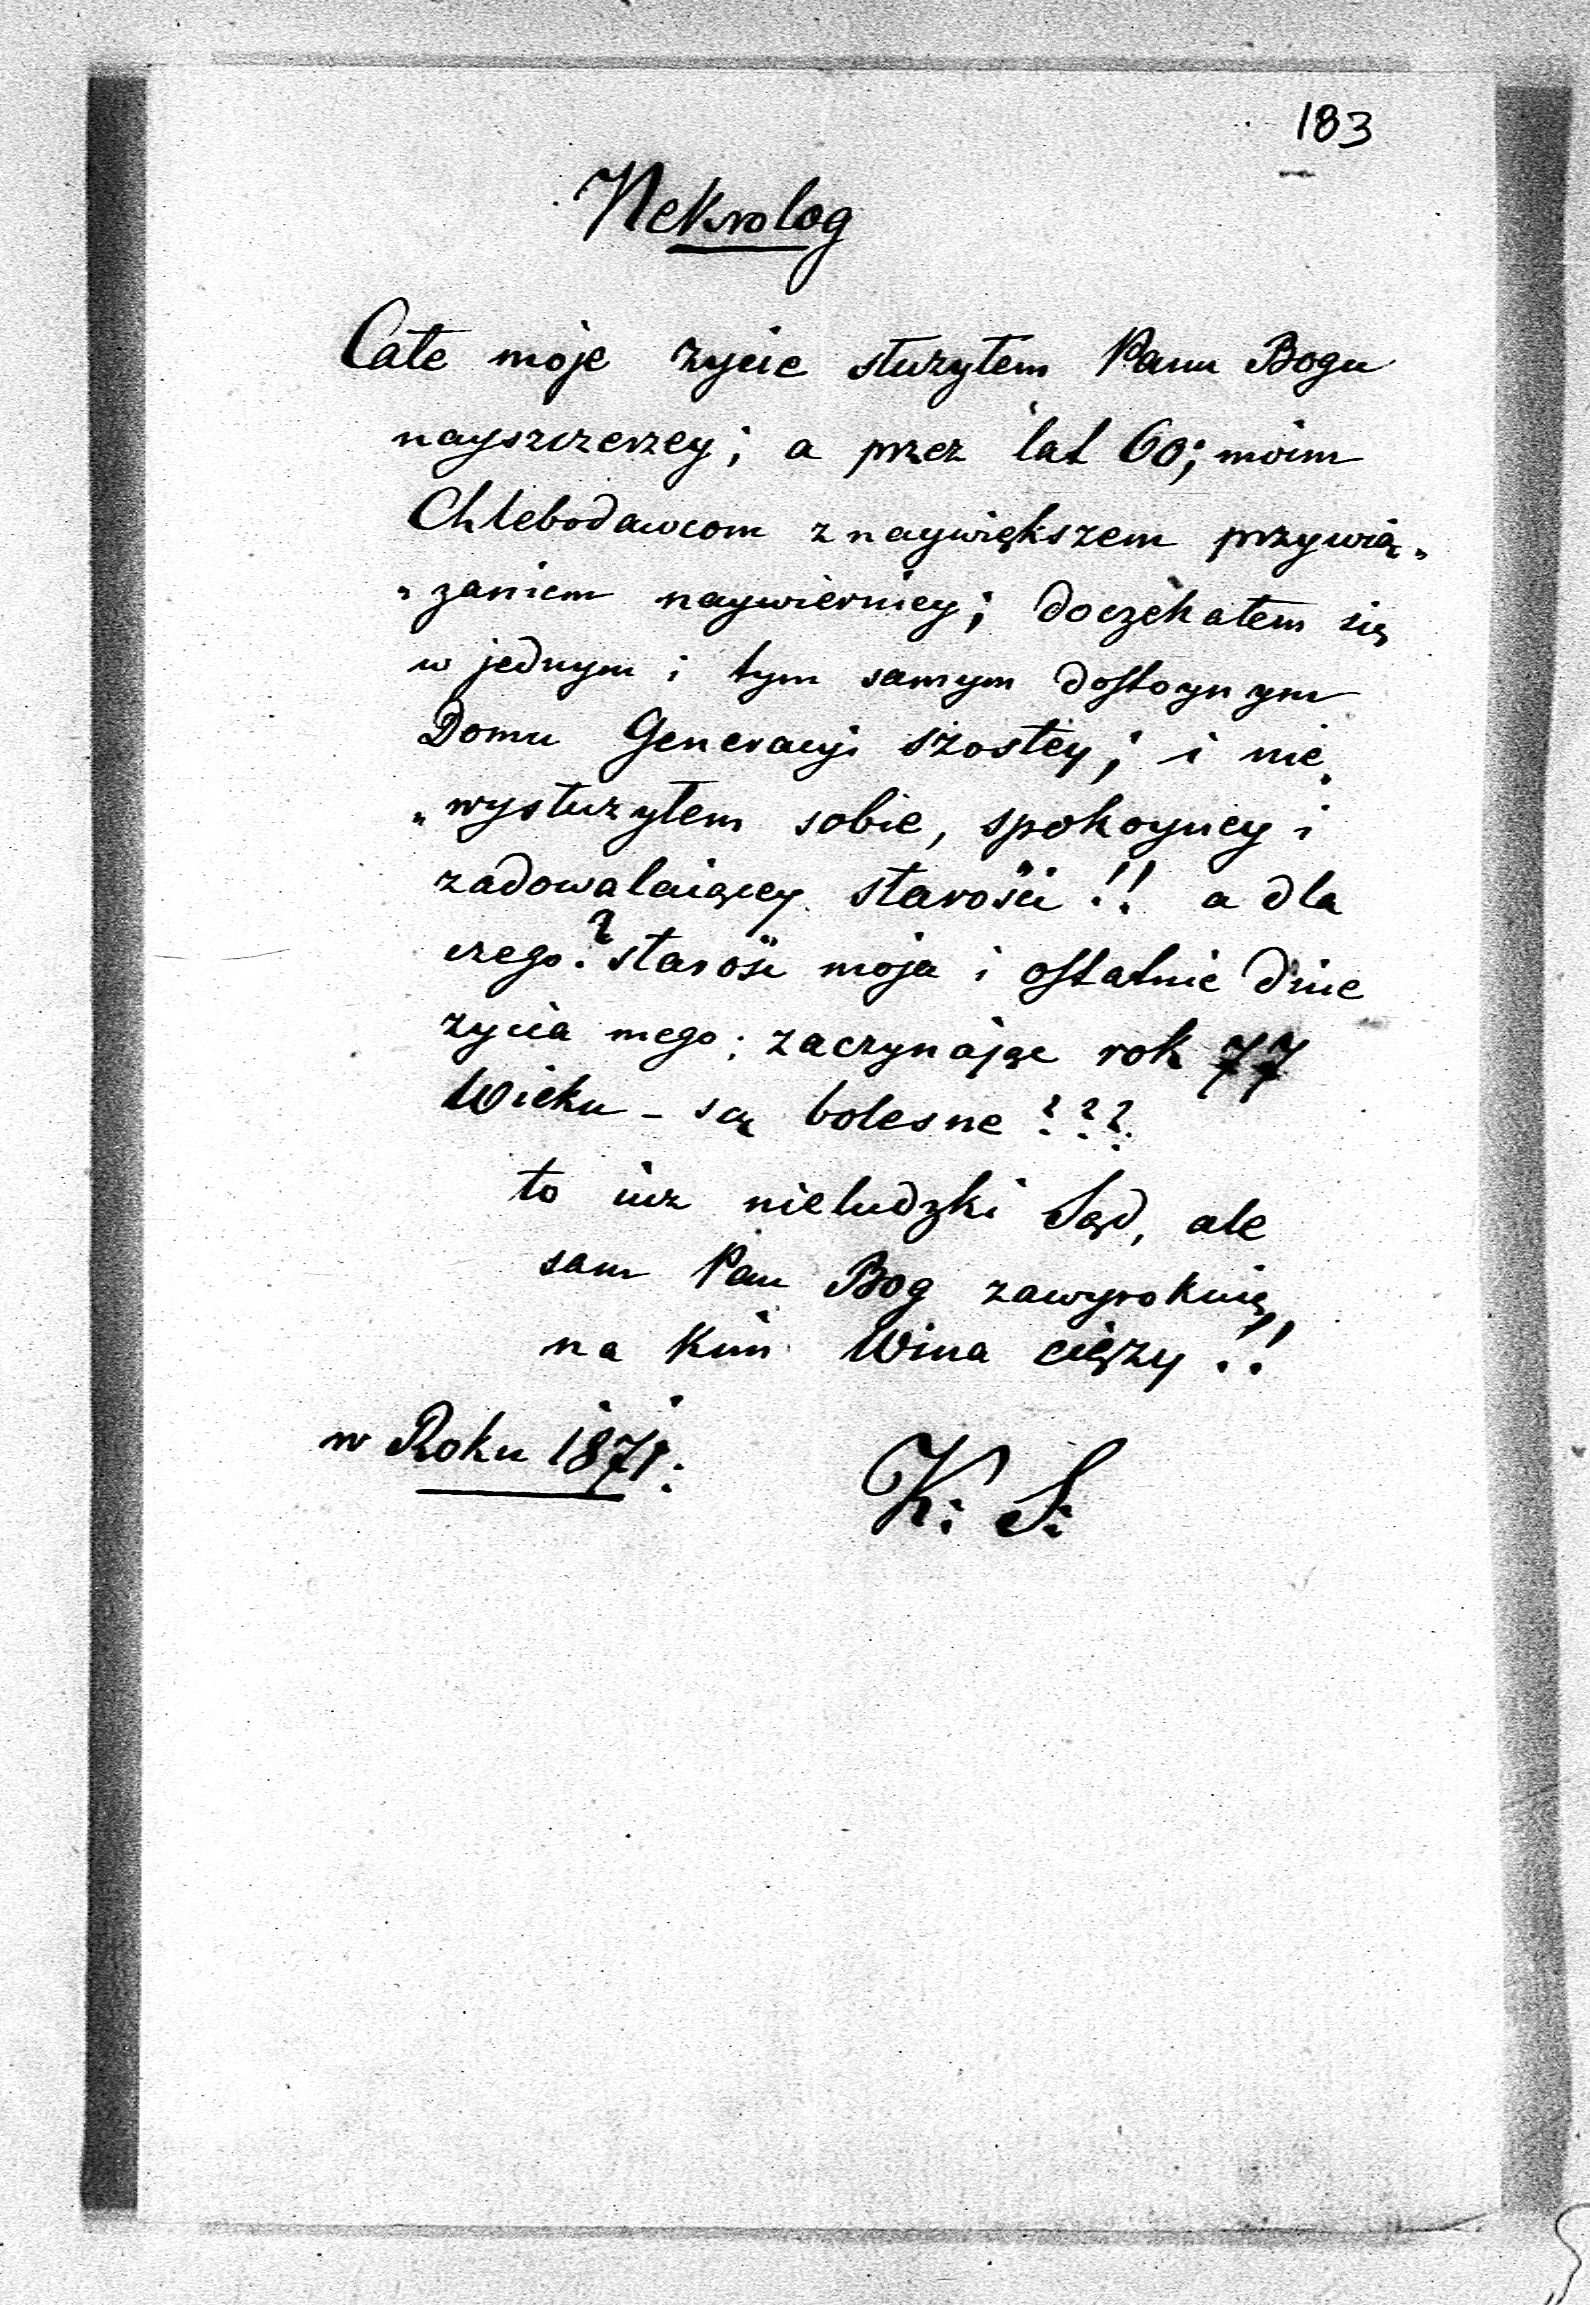 183
Nekrolog
Całe moje zycie służyłem Panu Bogu
nayszczerzey; a przez lat 60; moim
Chlebodawcom z naywiększem przywią„
„zaniem naywierniey; doczekałem się
w jednym i tym samym dostoynym
Domu Generacyi szostey; i nie„
„wysłuzyłem sobie, spokoyney i
zadowalaiącey starości!! a dla
czego? starość moja i ostatnie dnie
zycia mego; zaczynając rok 77
Wieku - są bolesne???
to iuz nieludzki Sąd, ale
sam Pan Bog zawyrokuie,
na kim Wina cięzy!!
w Roku 1871:
K: S: